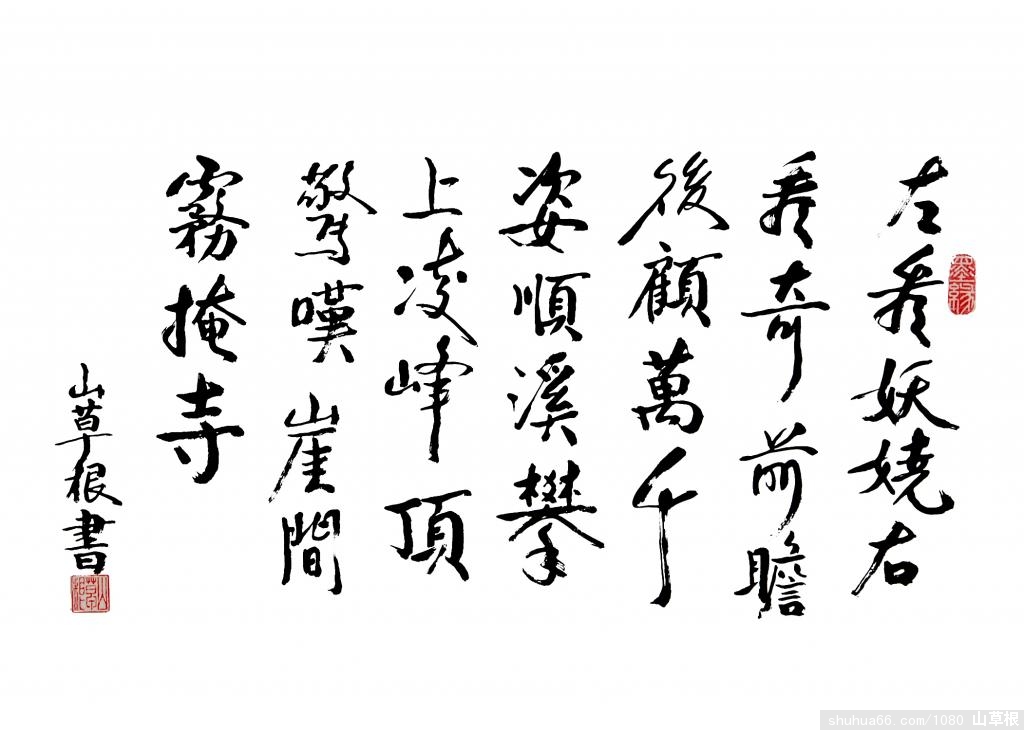 左看妖娆右
看奇前瞻
後顧萬千
姿順溪攀
上凌峰頂
驚嘆崖間
霧掩寺
山草根書
墨缘
山草根
shuhua66.com/1080 山草根